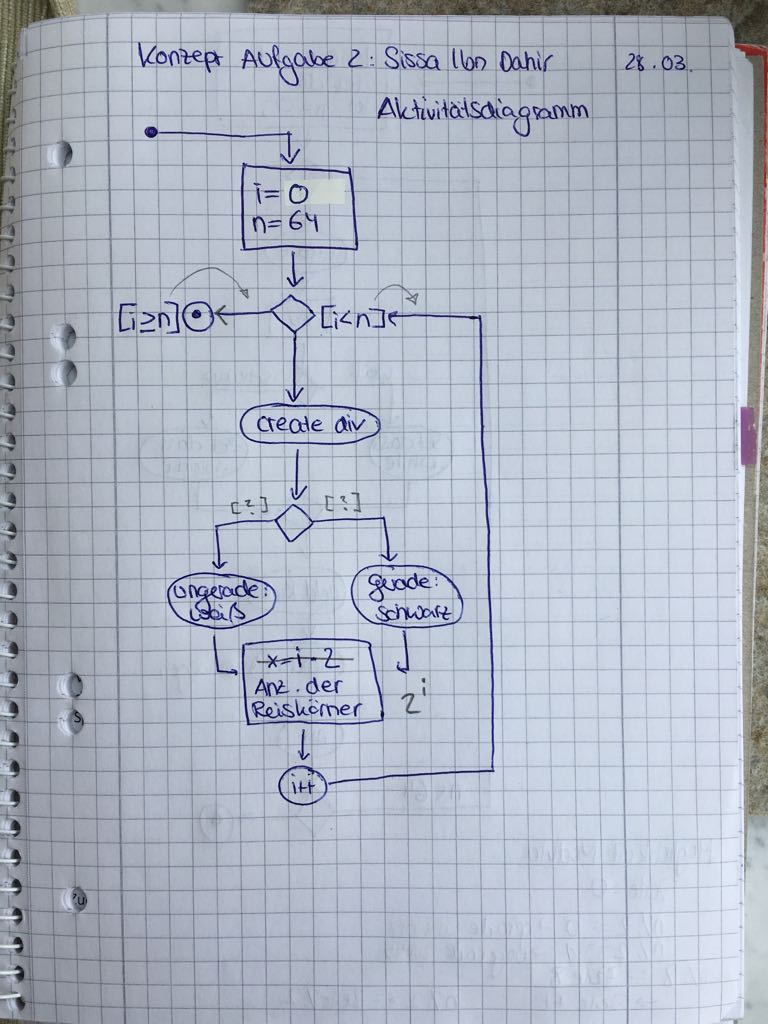 Konzept Aufgabe 2: Sissa Ibn Dahir 28.03.
Aktivitätsdiagramm
i= 0
n= 64
[i≥n]
[i<n]
create div
[?]
[?]
ungerade:
weiß
gerade:
schwarz
x=i·2
Anz. der
Reiskörner
2^i
i++